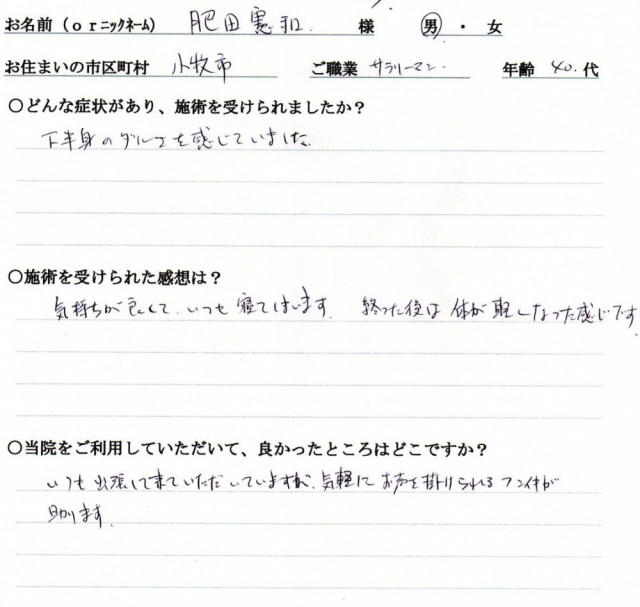 お名前(orニックネーム) 肥田憲和 様 男・女
お住まいの市区町村 小牧市 ご職業 サラリーマン. 年齢 40.代
〇どんな症状があり、施術を受けられましたか?
下半身のダルさを感じていました.
〇施術を受けられた感想は?
気持ちが良くて、いつも寝てしまいます. 終った後は体が軽くなった感じです
〇当院をご利用していただいて、良かったところはどこですか?
いつも出張して来ていただいていますが、気軽にお声を掛けられるフンイキが
助かります.